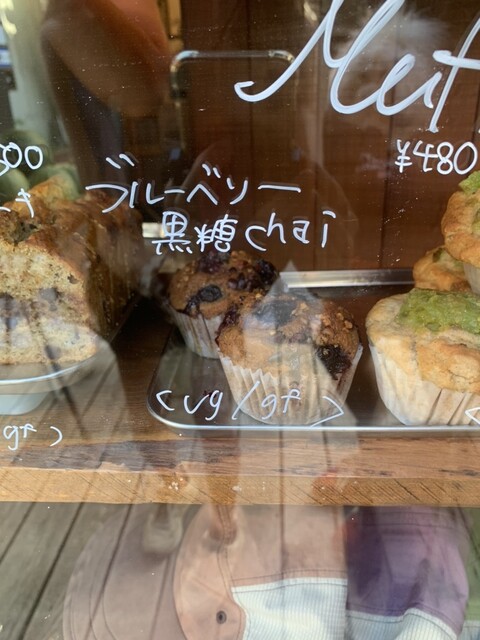 ¥480
500
ブルーベリー
黒糖chai
<vg/gf>
gf>